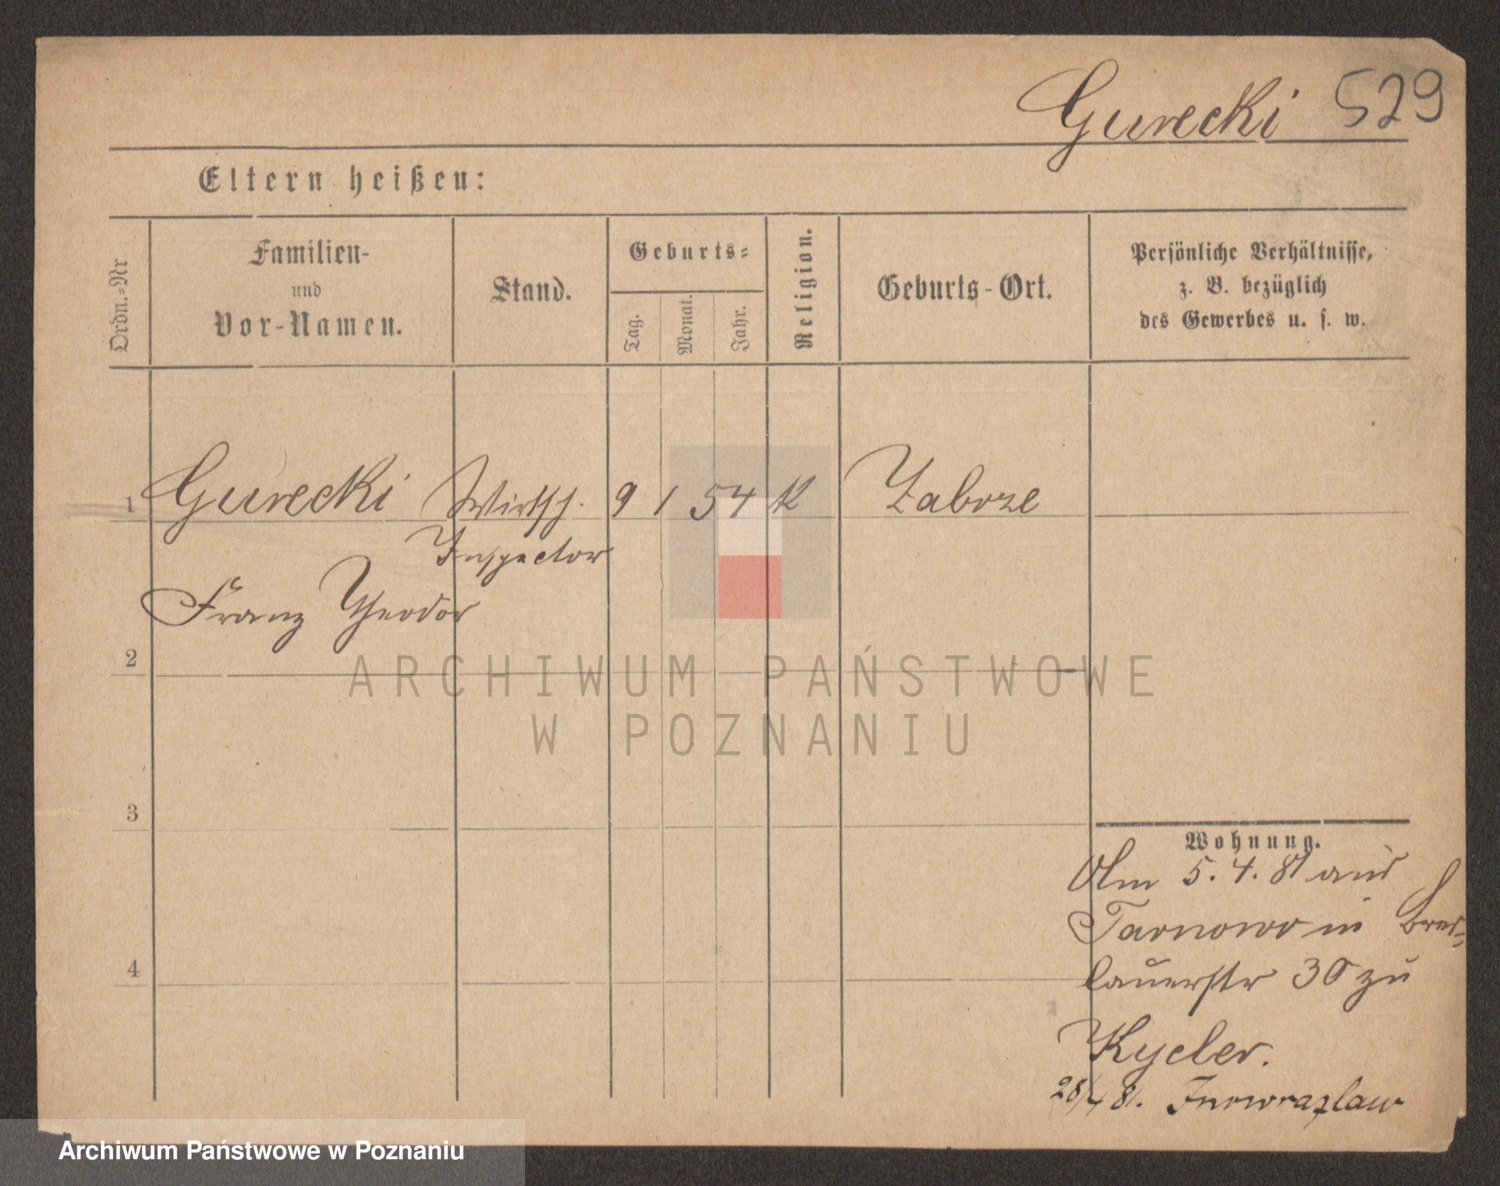 Gurecki 529
Eltern heißen:
Ordn.-Nr
Familien-
und
Vor-Namen.
Stand.
Geburts-
Tag.
Monat.
Jahr.
Religion.
Geburts-Ort.
Persönliche Verhältnisse,
z. B. bezüglich
des Gewerbes u. s. w.
1 Gurecki Wirtsch. 9 1 54 K Zaborze
Inspector
Franz Theodor
2
3
4
Wohnung.
Am 5.4.81 aus
Tarnowo in Bres-
lauerstr 30 zu
Kycler.
28/4 81. Inowrazlaw
ARCHIWUM PAŃSTWOWE
W POZNANIU
Archiwum Państwowe w Poznaniu